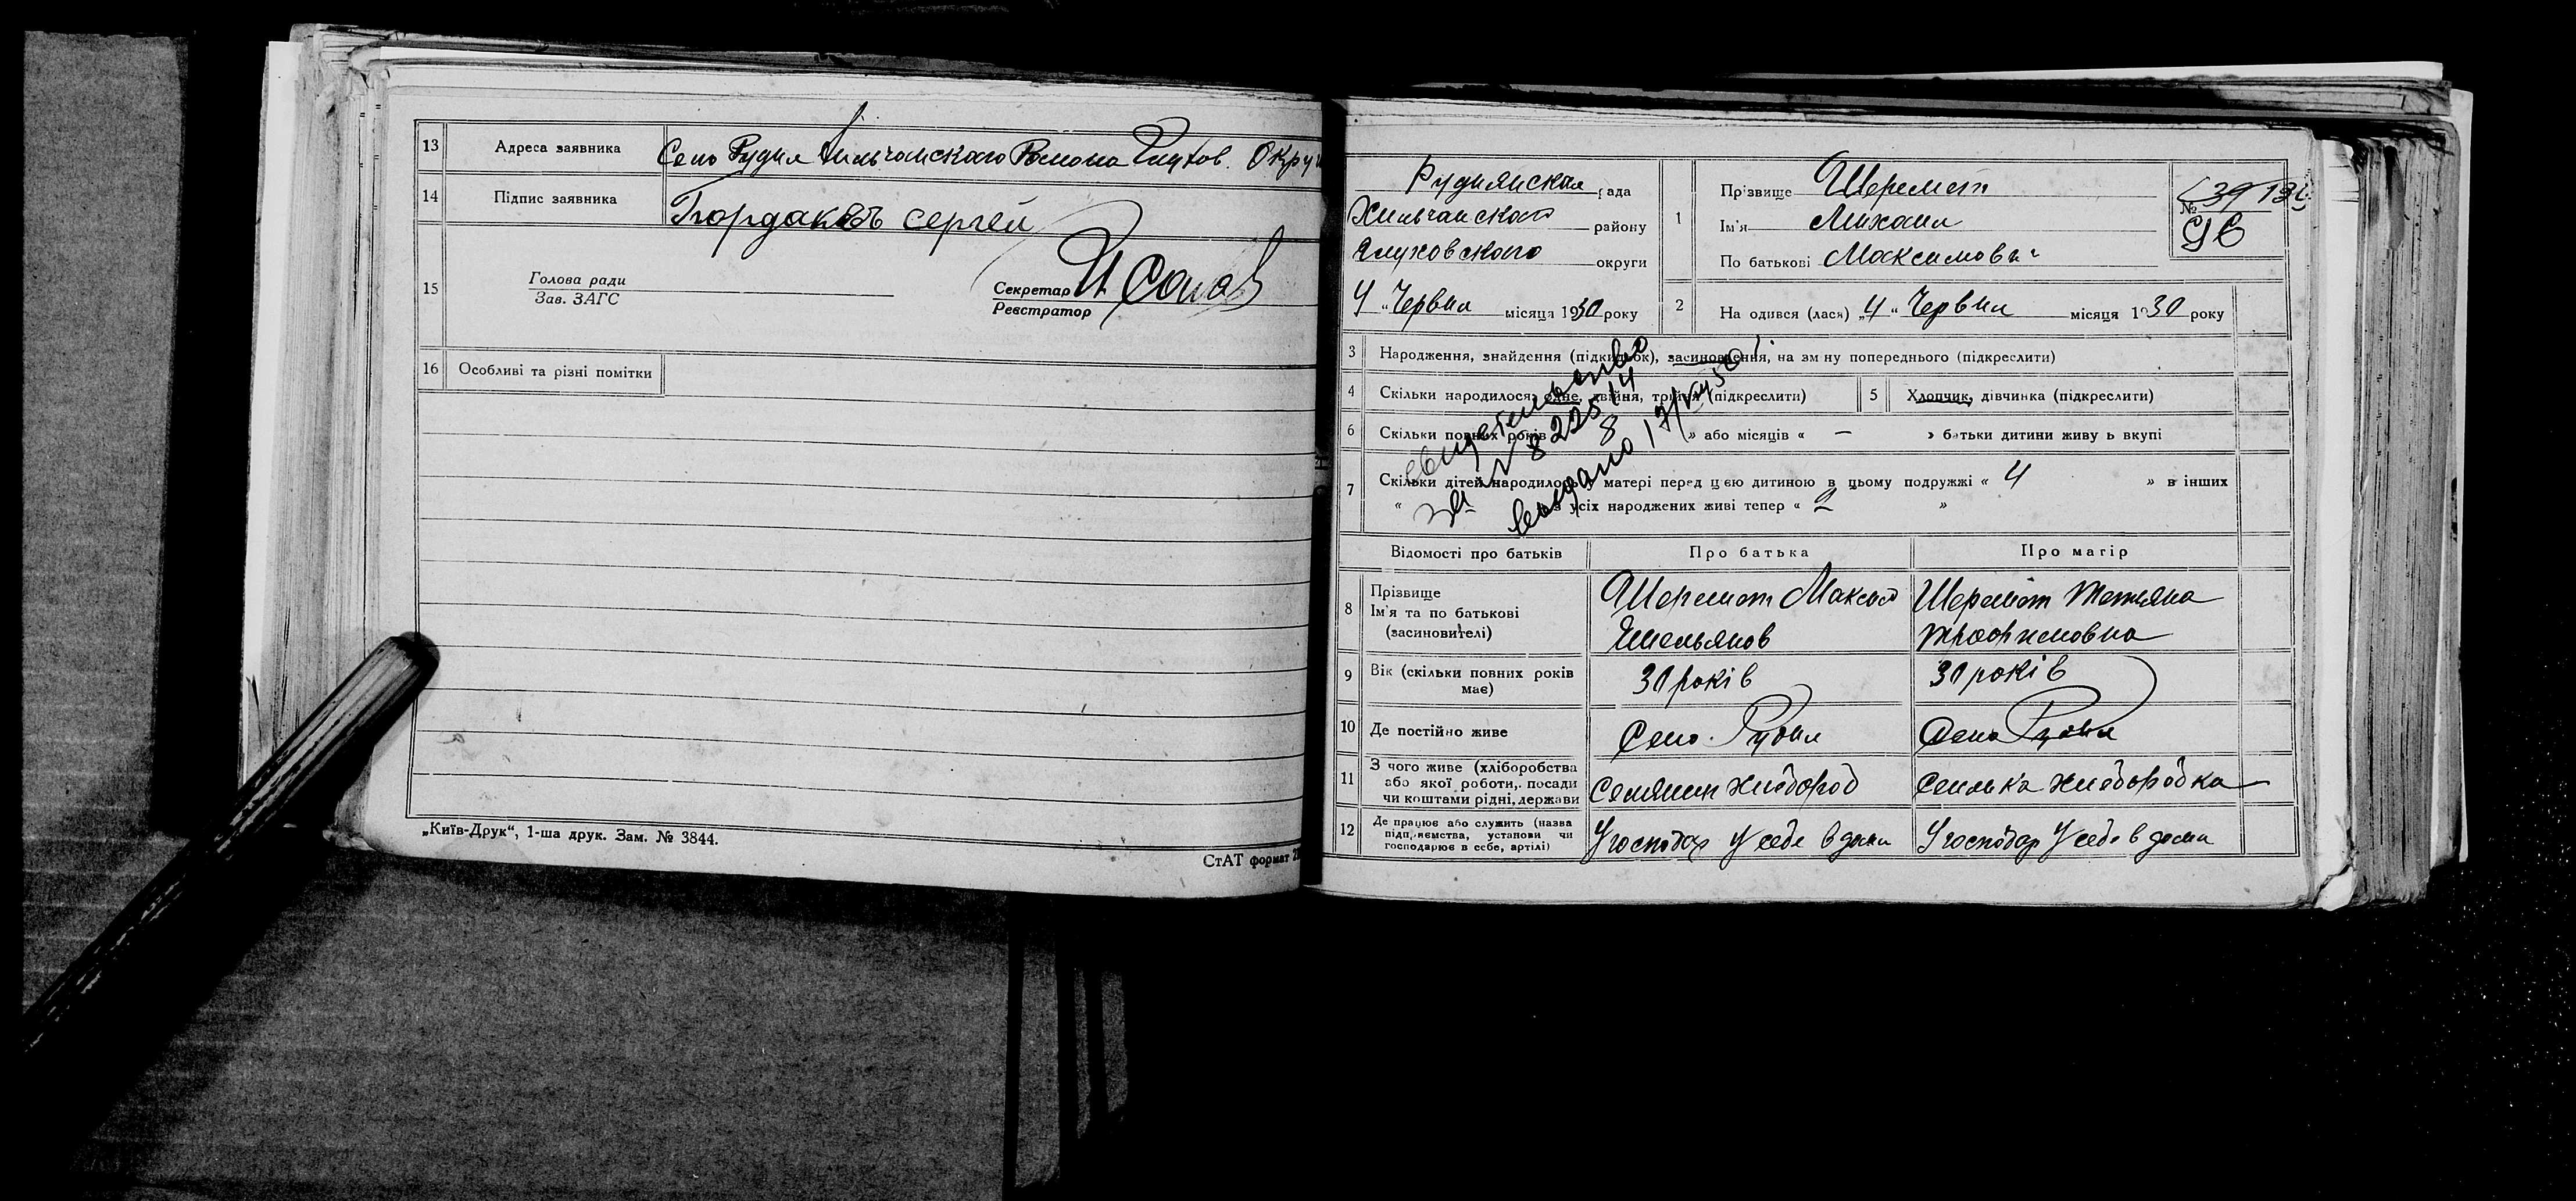 13 Адреса заявника Село Рудня Хильчанского Района Глухов. Округи
14 Підпис заявника Сергей
15 Голова ради
Зав. ЗАГС
Секретар
Реєстратор
16 Особливі та різні помітки
„Київ-Друк“, 1-ша друк. Зам. № 3844.
СтАТ формат
Руднянская рада
Хильчанского району
Глуховского округи
4 „ Червня місяця 1930 року
1 Прізвище Шеремет
Ім'я Михаил
По батькові Максимович
№ 39
2 На одився (лася) „4 “ Червня місяця 1930 року
3 Народження, знайдення (підкидьок), засиновлення, на зм ну попереднього (підкреслити)
4 Скільки народилося: одне, двійня, трійня (підкреслити)
5 Хлопчик, дівчинка (підкреслити)
6 Скільки повних років 8 » або місяців « — » батьки дитини живу ь вкупі
7 Скільки дітей народилось у матері перед цією дитиною в цьому подружжі « 4 » в інших
« з усіх народжених живі тепер « 2 »
свидетельство
за № 822514
выдано 17/VII 50
Відомості про батьків Про батька Про матір
8 Прізвище
Ім'я та по батькові
(засновителі)
Шеремет Максим
Емельянов
Шеремет Татьяна
Трофимовна
9 Вік (скільки повних років
має)
30 років 30 років
10 Де постійно живе Село Рудня Село Рудня
11 З чого живе (хліборобства
або якої роботи, посади
чи коштами рідні, держави
Селянин хлібороб Селянка хлібородка
12 Де працює або служить (назва
підприємства, установи чи
господарює в себе, артілі)
У господар У себе в доми У господар У себе в доми